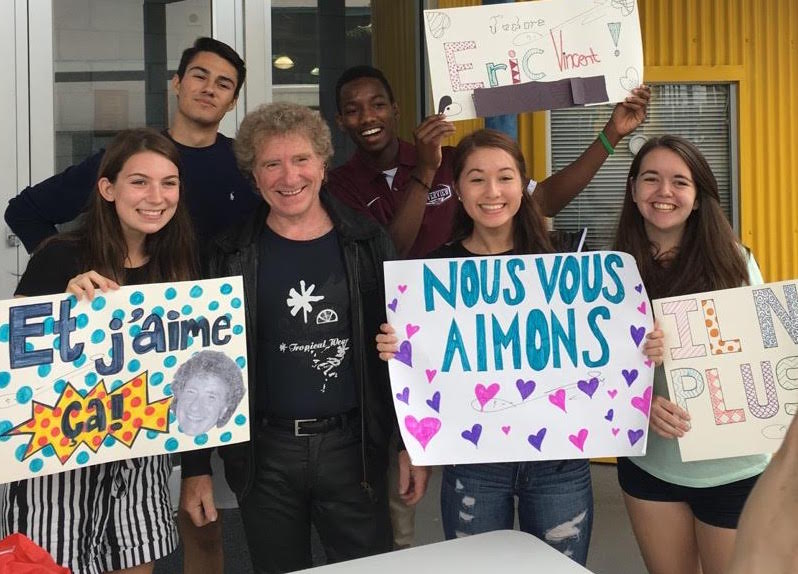 J'adore
Eric Vincent !
Et j'aime
ça!!
NOUS VOUS
AIMONS
IL N
PLUS
Tropical_We